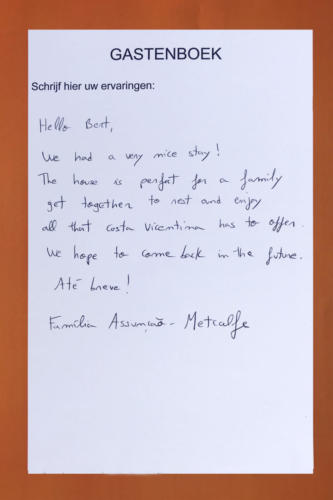 GASTENBOEK
Schrijf hier uw ervaringen:
Hello Bert,
We had a very nice stay!
The house is perfect for a family
get together to rest and enjoy
all that costa Vicentina has to offer.
We hope to come back in the future.
Até breve!
Família Assunção - Metcalfe